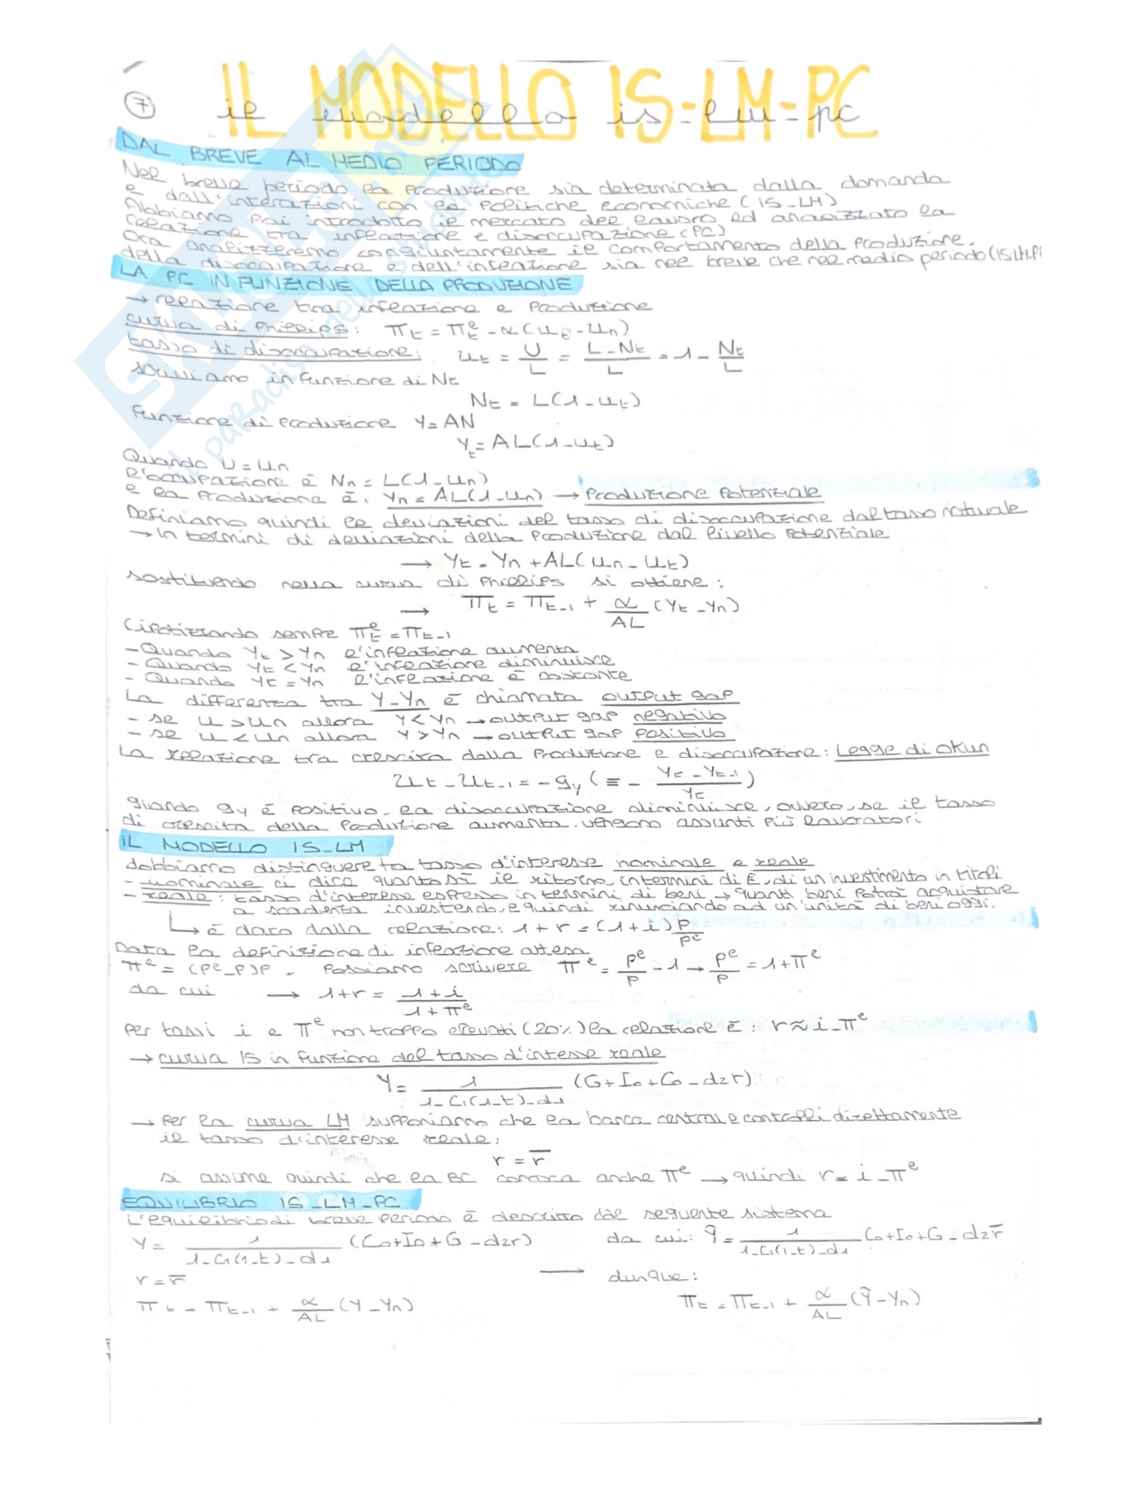 IL MODELLO IS-LM-PC
7 il modello is-lm-pc
DAL BREVE AL MEDIO PERIODO
Nel breve periodo la produzione sia determinata dalla domanda
e dall'interazioni con le politiche economiche (IS-LM)
Abbiamo poi introdotto il mercato del lavoro ed analizzato la
relazione tra inflazione e disoccupazione (PC)
Ora analizzeremo congiuntamente il comportamento della produzione,
della disoccupazione e dell'inflazione sia nel breve che nel medio periodo (IS LM P
LA PC IN FUNZIONE DELLA PRODUZIONE
→ relazione tra inflazione e produzione
curva di Phillips: πt = πt^e - α(ut - un)
tasso di disoccupazione: ut = U/L = (L - Nt)/L = 1 - Nt/L
scriviamo in funzione di Nt
Nt = L(1 - ut)
Funzione di produzione Y = AN
Yt = AL(1 - ut)
Quando U = Un
l'occupazione è Nn = L(1 - Un)
e la produzione è: Yn = AL(1 - Un) → Produzione Potenziale
Definiamo quindi le deviazioni del tasso di disoccupazione dal tasso naturale
→ in termini di deviazioni della produzione dal livello potenziale
→ Yt - Yn + AL(un - ut)
sostituendo nella curva di Phillips si ottiene:
→ πt = πt-1 + α/AL (Yt - Yn)
(ipotizzando sempre πt^e = πt-1
- Quando Yt > Yn l'inflazione aumenta
- Quando Yt < Yn l'inflazione diminuisce
- Quando Yt = Yn l'inflazione è costante
La differenza tra Y - Yn è chiamata output gap
- se u > un allora Y < Yn → output gap negativo
- se u < un allora Y > Yn → output gap positivo
La relazione tra crescita della produzione e disoccupazione: Legge di Okun
ut - ut-1 = - gy (≡ - (Yt - Yt-1)/Yt)
quando gy è positivo, la disoccupazione diminuisce, ovvero, se il tasso
di crescita della produzione aumenta. vengono assunti più lavoratori
IL MODELLO IS-LM
dobbiamo distinguere tra tasso d'interesse nominale e reale
- nominale ci dice quanto sia il ritorno, in termini di €, di un investimento in titoli
- reale: tasso d'interesse espresso in termini di beni → quanti beni potrà acquistare
a scadenza investendo, e quindi rinunciando ad un'unità di beni oggi.
↳ è dato dalla relazione: 1 + r = (1 + i) P/P^e
Data la definizione di inflazione attesa
π^e = (P^e - P)P - possiamo scrivere π^e = P^e/P - 1 → P^e/P = 1 + π^e
da cui → 1 + r = (1 + i)/(1 + π^e)
per tassi i e π^e non troppo elevati (20%) la relazione è: r ≈ i - π^e
→ curva IS in funzione del tasso d'intesse reale
Y = 1/(1 - C1(1 - t) - d1) (G + I0 + C0 - d2r)
→ per la curva LM supponiamo che la banca centrale controlli direttamente
il tasso d'interesse reale:
r = r̄
si assume quindi che la BC conosca anche π^e → quindi r = i - π^e
EQUILIBRIO IS-LM-PC
L'equilibrio di breve periodo è descritto dal seguente sistema
Y = 1/(1 - C1(1 - t) - d1) (C0 + I0 + G - d2r) da cui: Ŷ = 1/(1 - C1(1 - t) - d1) C0 + I0 + G - d2r̄
r = r̄ → dunque:
πt - πt-1 + α/AL (Y - Yn) πt = πt-1 + α/AL (Ŷ - Yn)